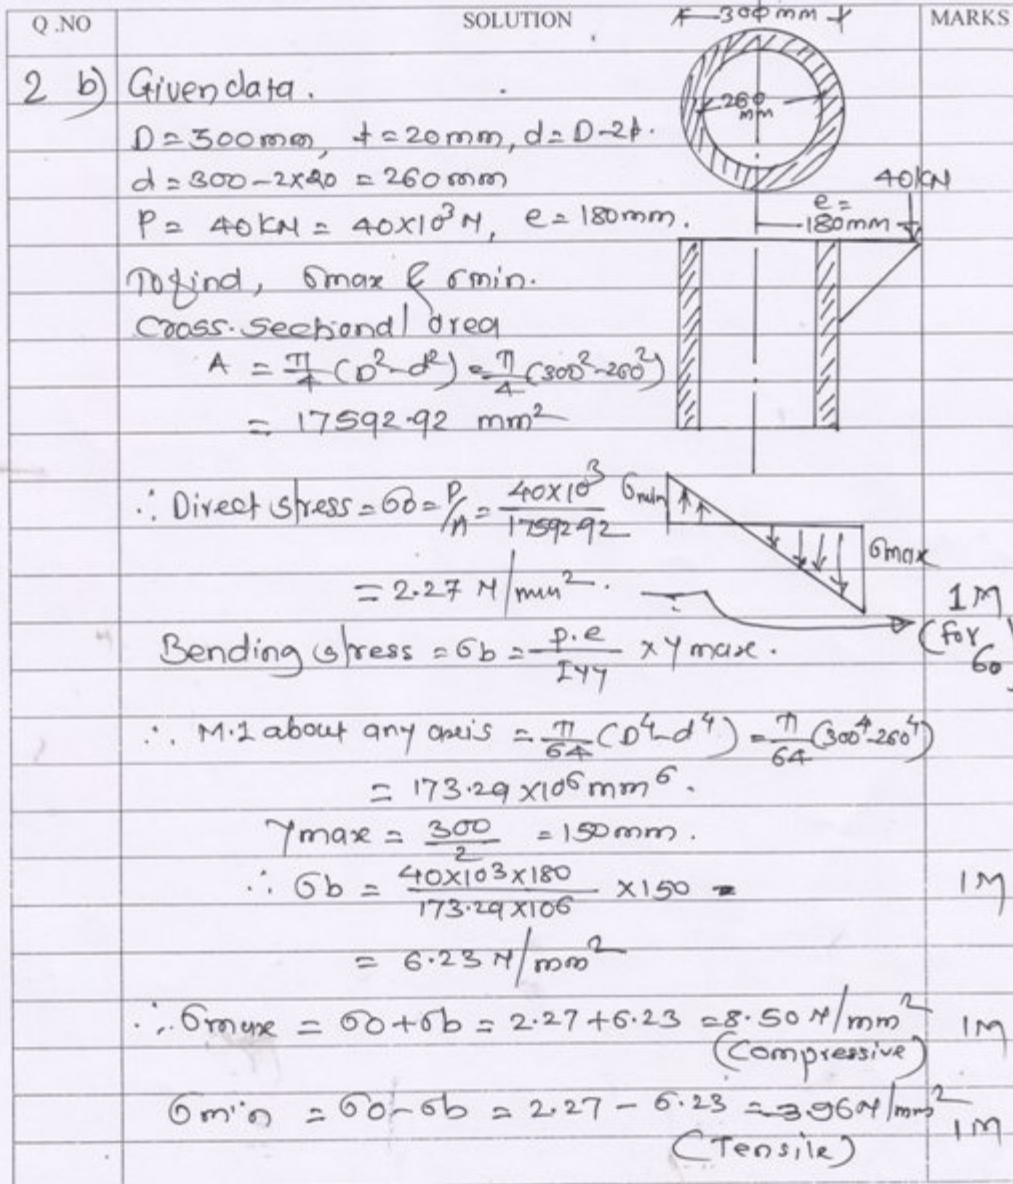 Q.NO SOLUTION MARKS
300 mm
2 b) Given data.
260 mm
D = 300mm, t = 20mm, d = D-2t.
d = 300-2×20 = 260mm
40KN
P = 40 KN = 40×10³ N, e = 180mm.
e = 180mm
To find, σmax & σmin.
Cross-Sectional area
A = π/4 (D²-d²) = π/4 (300²-260²)
= 17592.92 mm²
∴ Direct stress = σo = P/A = 40×10³/17592.92
σmin
σmax
= 2.27 N/mm².
1M (for σo)
Bending stress = σb = P.e/Iyy × Y max.
∴ M.I about any axis = π/64 (D⁴-d⁴) = π/64 (300⁴-260⁴)
= 173.29 ×10⁶ mm⁶.
Ymax = 300/2 = 150mm.
∴ σb = 40×10³×180/173.29×10⁶ ×150 = 1M
= 6.23 N/mm²
∴ σmax = σo+σb = 2.27+6.23 = 8.50 N/mm² 1M
(Compressive)
σmin = σo-σb = 2.27 - 6.23 = -3.96 N/mm² 1M
(Tensile)